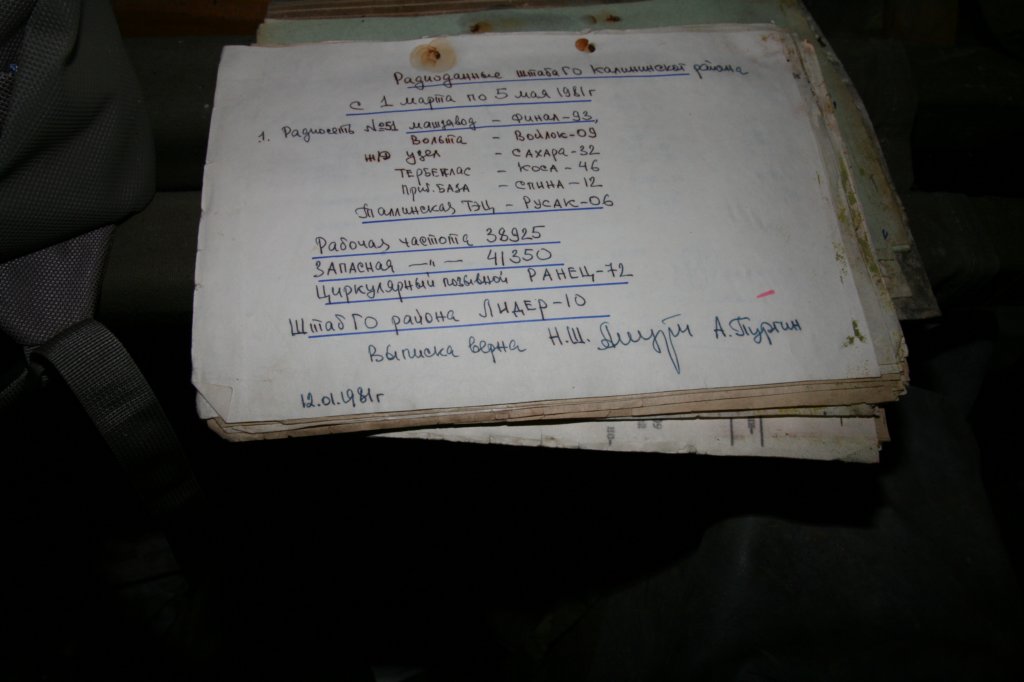 Радиоданные штаба ГО Калининского района
с 1 марта по 5 мая 1981г
1. Радиосеть №51 машзавод - Финал-93,
Вольта - Войлок-09
ж/д узел - САХАРА-32
ТЕРБЕКЛАС - КОСА-46
Приб. БАЗА - СПИНА-12
Таллинская ТЭЦ - РУСАК-06
Рабочая частота 38925
ЗАПАСНАЯ —"— 41350
Циркулярный позывной РАНЕЦ-72
Штаб ГО района ЛИДЕР-10
Выписка верна Н.Ш. А. Тургин
12.01.1981г